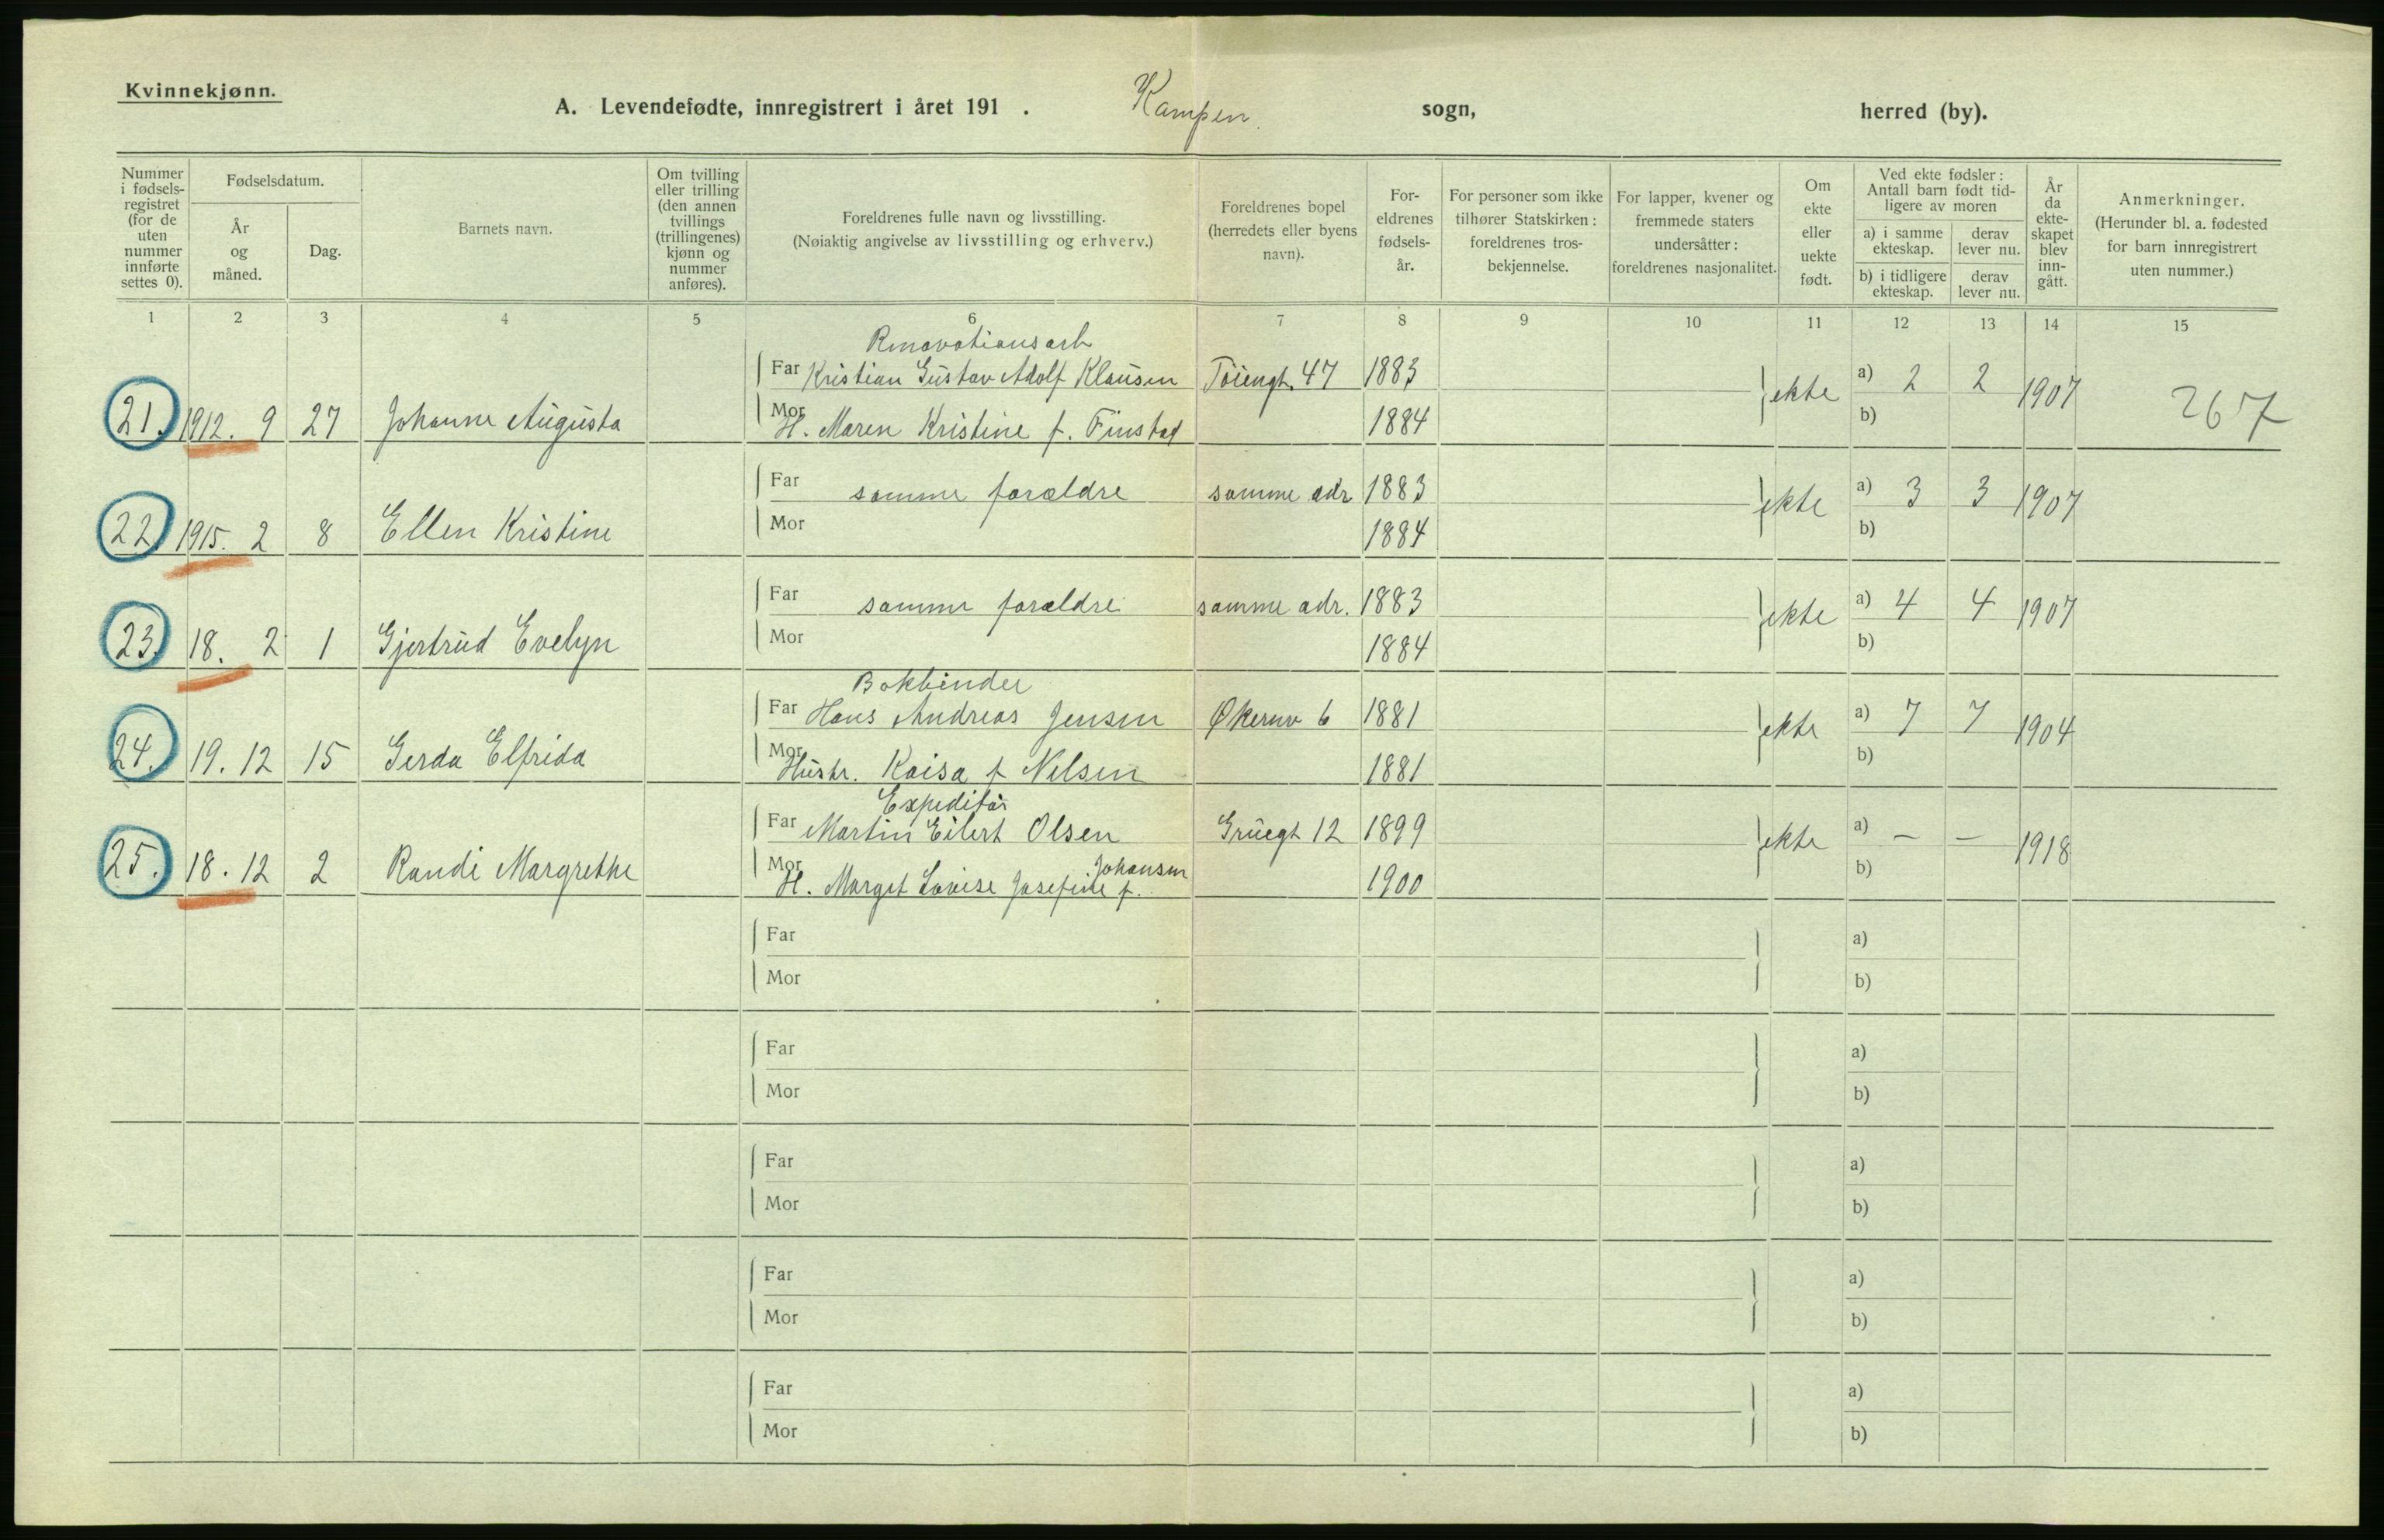 Kvinnekjønn.
A. Levendefødte, innregistrert i året 191 . Kampen. sogn, herred (by).
Nummer i fødselsregistret (for de uten nummer innførte settes 0).
Fødselsdatum.
År og måned.
Dag.
Barnets navn.
Om tvilling eller trilling (den annen tvillings (trillingenes) kjønn og nummer anføres).
Foreldrenes fulle navn og livsstilling.
(Nøiaktig angivelse av livsstilling og erhverv.)
Foreldrenes bopel (herredets eller byens navn).
For-eldrenes fødsels-år.
For personer som ikke tilhører Statskirken: foreldrenes tros-bekjennelse.
For lapper, kvener og fremmede staters undersåtter: foreldrenes nasjonalitet.
Om ekte eller uekte født.
Ved ekte fødsler: Antall barn født tid-ligere av moren
a) i samme ekteskap. derav lever nu.
b) i tidligere ekteskap. derav lever nu.
År da ekte-skapet blev inn-gått.
Anmerkninger.
(Herunder bl. a. fødested for barn innregistrert uten nummer.)
1 2 3 4 5 6 7 8 9 10 11 12 13 14 15
Renovationsarb
Far Kristian Gustav Adolf Klausen Töiengt. 47 1883 a) 2 2
21. 1912. 9 27 Johanne Augusta Mor H. Maren Kristine f. Finstad 1884 ekte b) 1907 267
Far samme forældre samme adr 1883 a) 3 3
22 1915. 2 8 Ellen Kristine Mor 1884 ekte b) 1907
Far samme forældre samme adr. 1883 a) 4 4
23. 18. 2 1 Gjertrud Evelyn Mor 1884 ekte b) 1907
Bokbinder
Far Hans Andreas Jensen Økernv 6 1881 a) 7 7
24. 19. 12 15 Gerda Elfrida Mor Hustr. Kaisa f Nilsen 1881 ekte b) 1904
Expeditør
Far Martin Eilert Olsen Grüegt 12 1899 a) — —
25. 18. 12 2 Randi Margrethe Mor H. Margit Lovise Josefine f. Johansen 1900 ekte b) 1918
Far a)
Mor b)
Far a)
Mor b)
Far a)
Mor b)
Far a)
Mor b)
Far a)
Mor b)